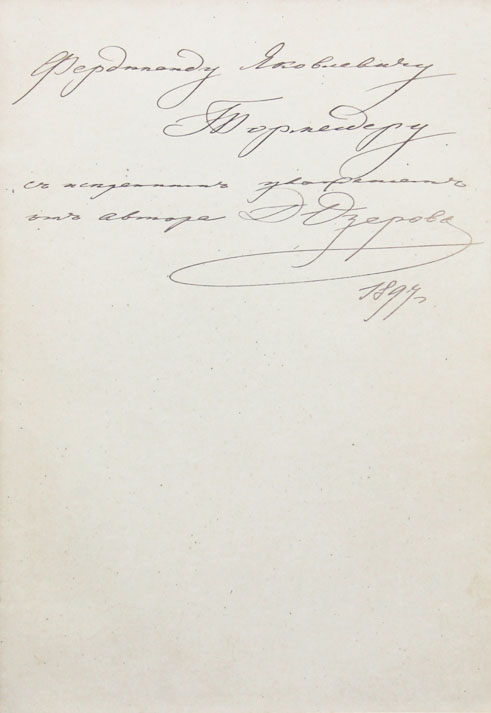 Фердинанду Яковлевичу
Тормейеру
съ искреннимъ уваженіемъ
отъ автора Д Озерова
1897